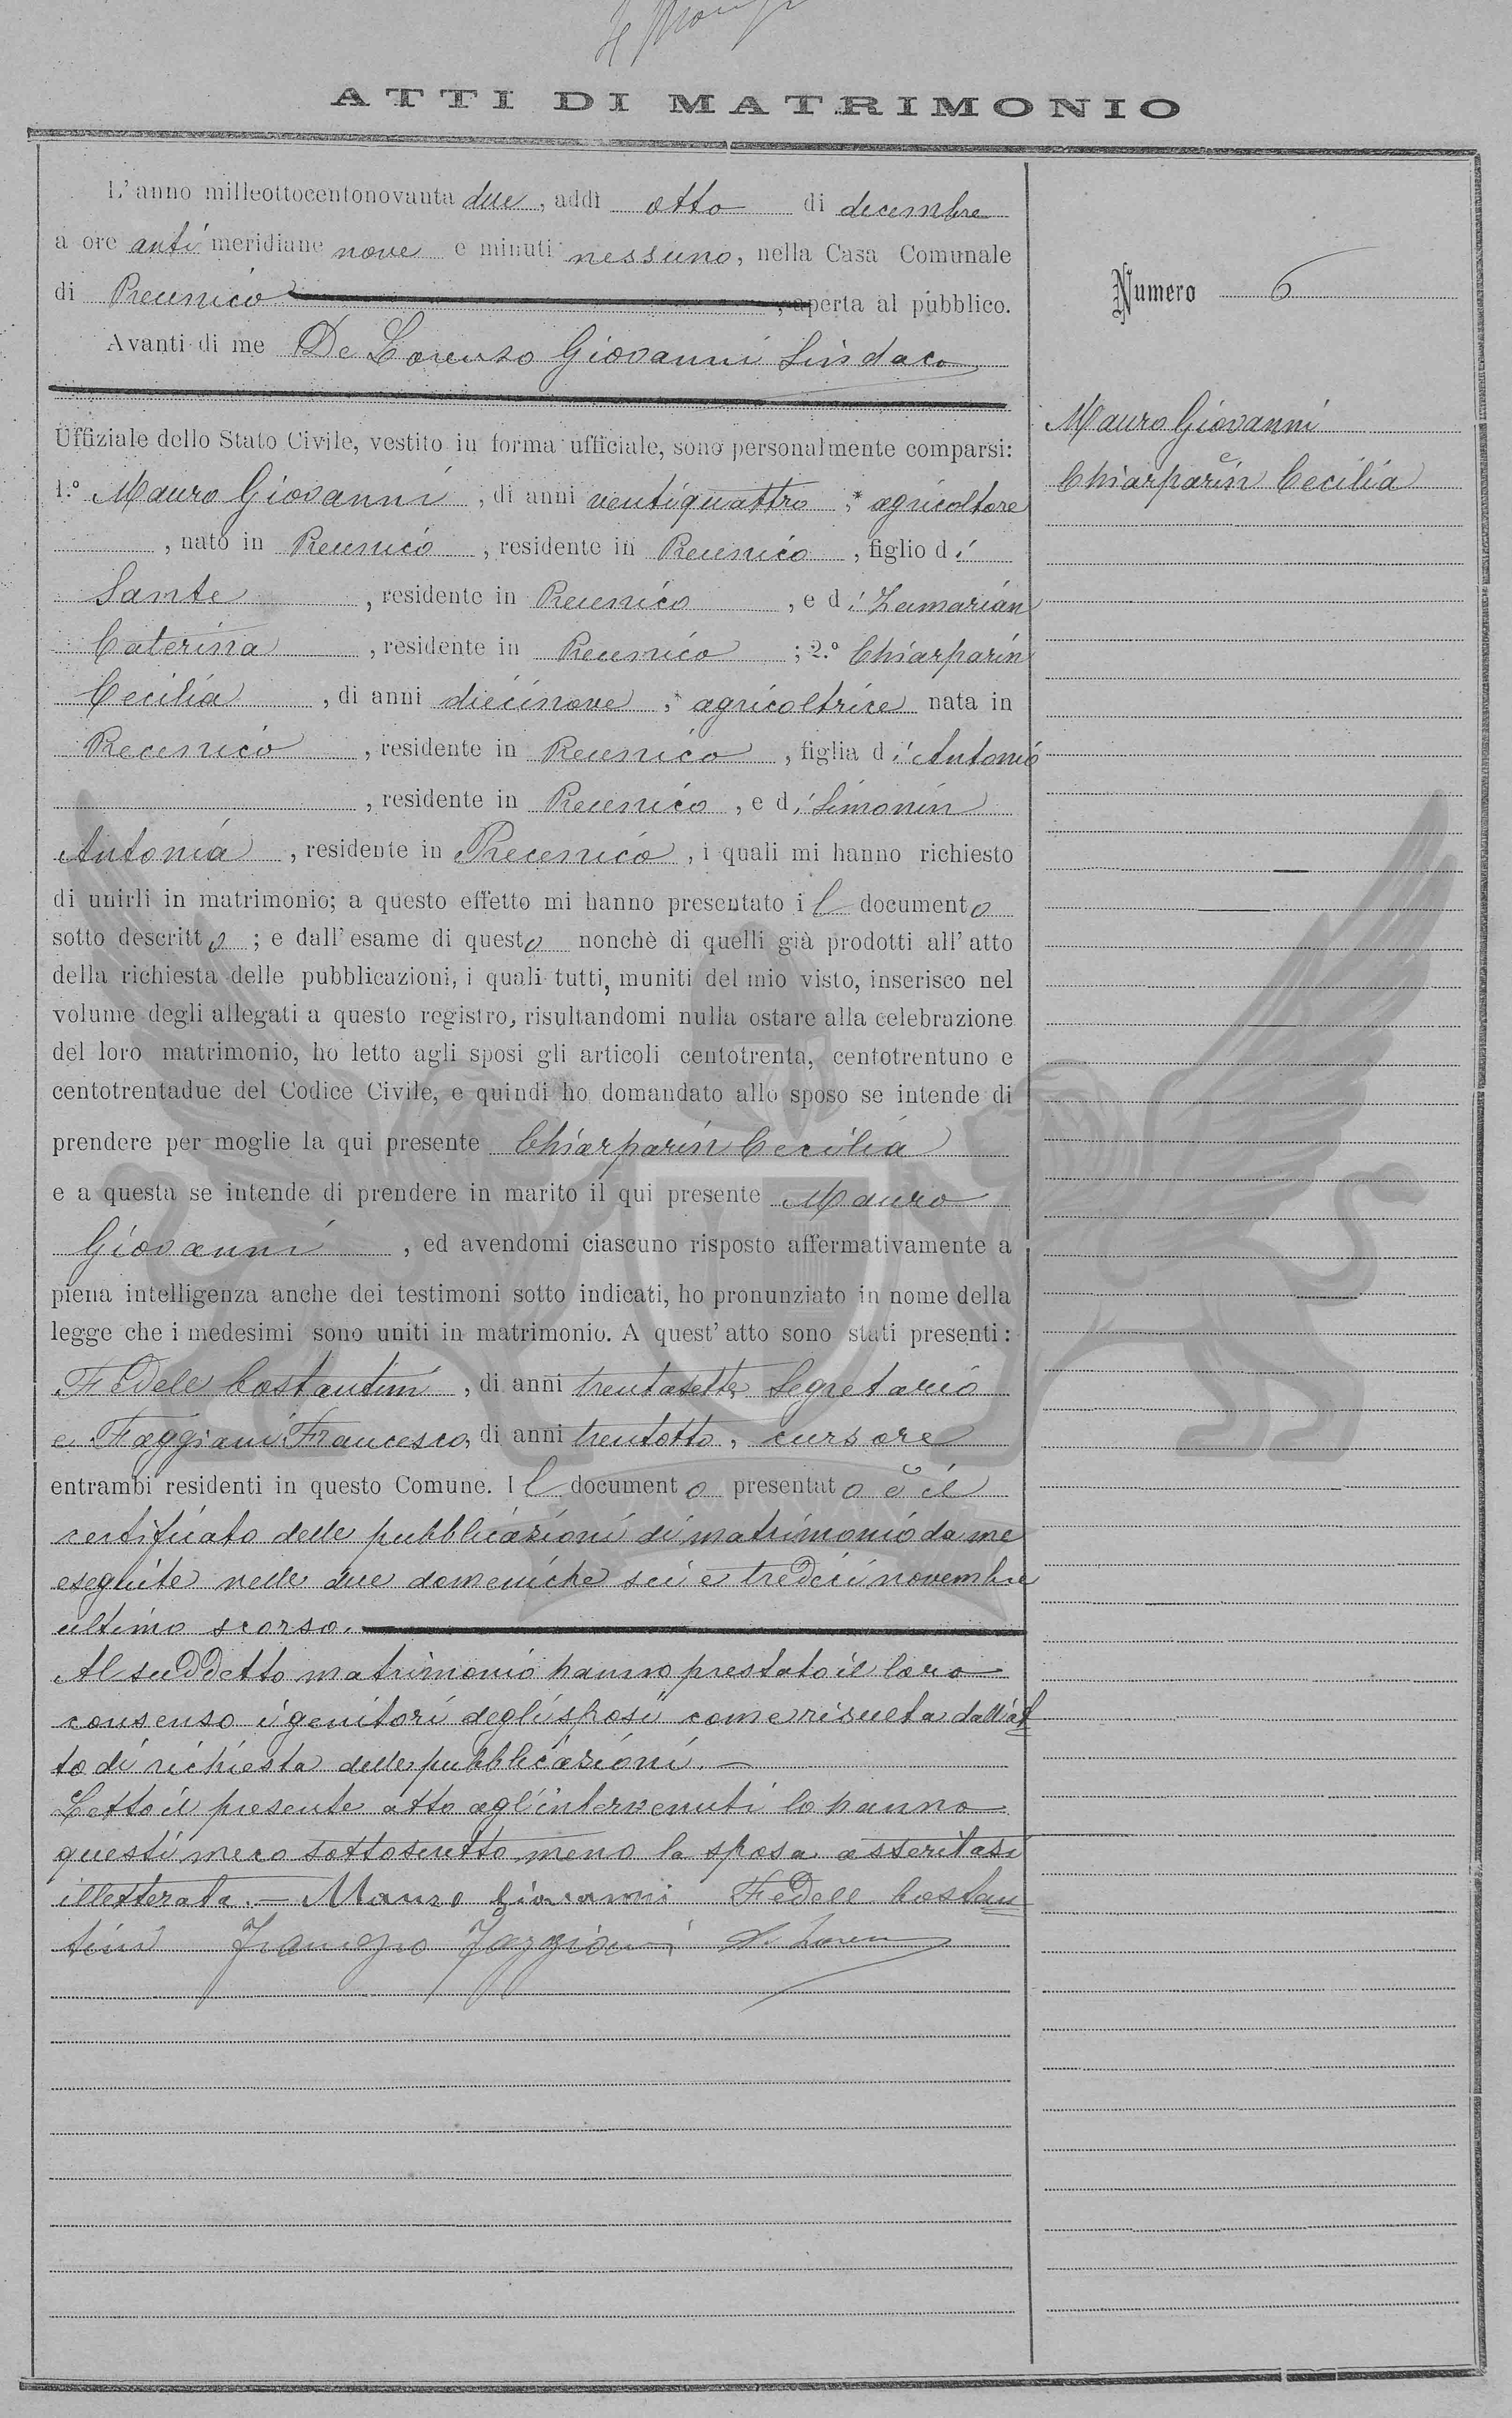 ATTI DI MATRIMONIO
L'anno milleottocentonovanta due, addì otto di decembre
a ore anti meridiane nove e minuti nessuno, nella Casa Comunale
di Precenico, aperta al pubblico.
Avanti di me De Lorenzo Giovanni Sindaco
Uffiziale dello Stato Civile, vestito in forma ufficiale, sono personalmente comparsi:
1.° Mauro Giovanni, di anni ventiquattro, * agricoltore
, nato in Precenico, residente in Precenico, figlio di
Sante, residente in Precenico, e di Zamarian
Caterina, residente in Precenico; 2.° Chiarparin
Cecilia, di anni diecinove, * agricoltrice nata in
Precenico, residente in Precenico, figlia di Antonio
, residente in Precenico, e di Simonin
Antonia, residente in Precenico, i quali mi hanno richiesto
di unirli in matrimonio; a questo effetto mi hanno presentato il documento
sotto descritto; e dall'esame di questo nonchè di quelli già prodotti all'atto
della richiesta delle pubblicazioni, i quali tutti, muniti del mio visto, inserisco nel
volume degli allegati a questo registro, risultandomi nulla ostare alla celebrazione
del loro matrimonio, ho letto agli sposi gli articoli centotrenta, centotrentuno e
centotrentadue del Codice Civile, e quindi ho domandato allo sposo se intende di
prendere per moglie la qui presente Chiarparin Cecilia
e a questa se intende di prendere in marito il qui presente Mauro
Giovanni, ed avendomi ciascuno risposto affermativamente a
piena intelligenza anche dei testimoni sotto indicati, ho pronunziato in nome della
legge che i medesimi sono uniti in matrimonio. A quest'atto sono stati presenti:
Fedele Costantini, di anni trentasette, Segretario
e Faggiani Francesco, di anni trentotto, cursore
entrambi residenti in questo Comune. Il documento presentato è il
certificato delle pubblicazioni di matrimonio da me
eseguite nelle due domeniche sei e tredici novembre
ultimo scorso.
Al suddetto matrimonio hanno prestato il loro
consenso i genitori degli sposi come risulta dall'at
to di richiesta delle pubblicazioni.
Letto il presente atto agl'intervenuti lo hanno
questi meco sottoscritto meno la sposa asseritasi
illetterata. — Mauro Giovanni Fedele Costan
tini Francesco Faggiani
Numero 6
Mauro Giovanni
e
Chiarparin Cecilia